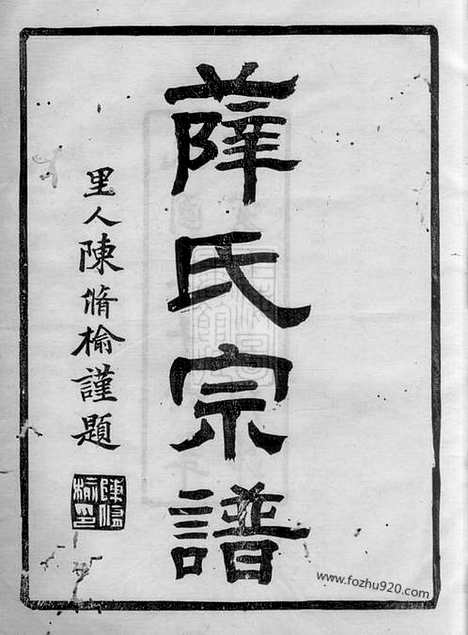 薛氏宗譜
里人陳脩榆謹題
陳脩榆印
www.fozhu920.com